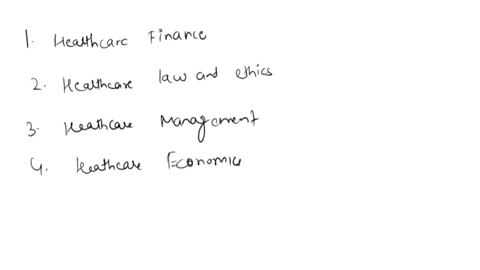 1. Healthcare Finance
2. Healthcare law and ethics
3. Heathcare Management
4. Heathcare Economic